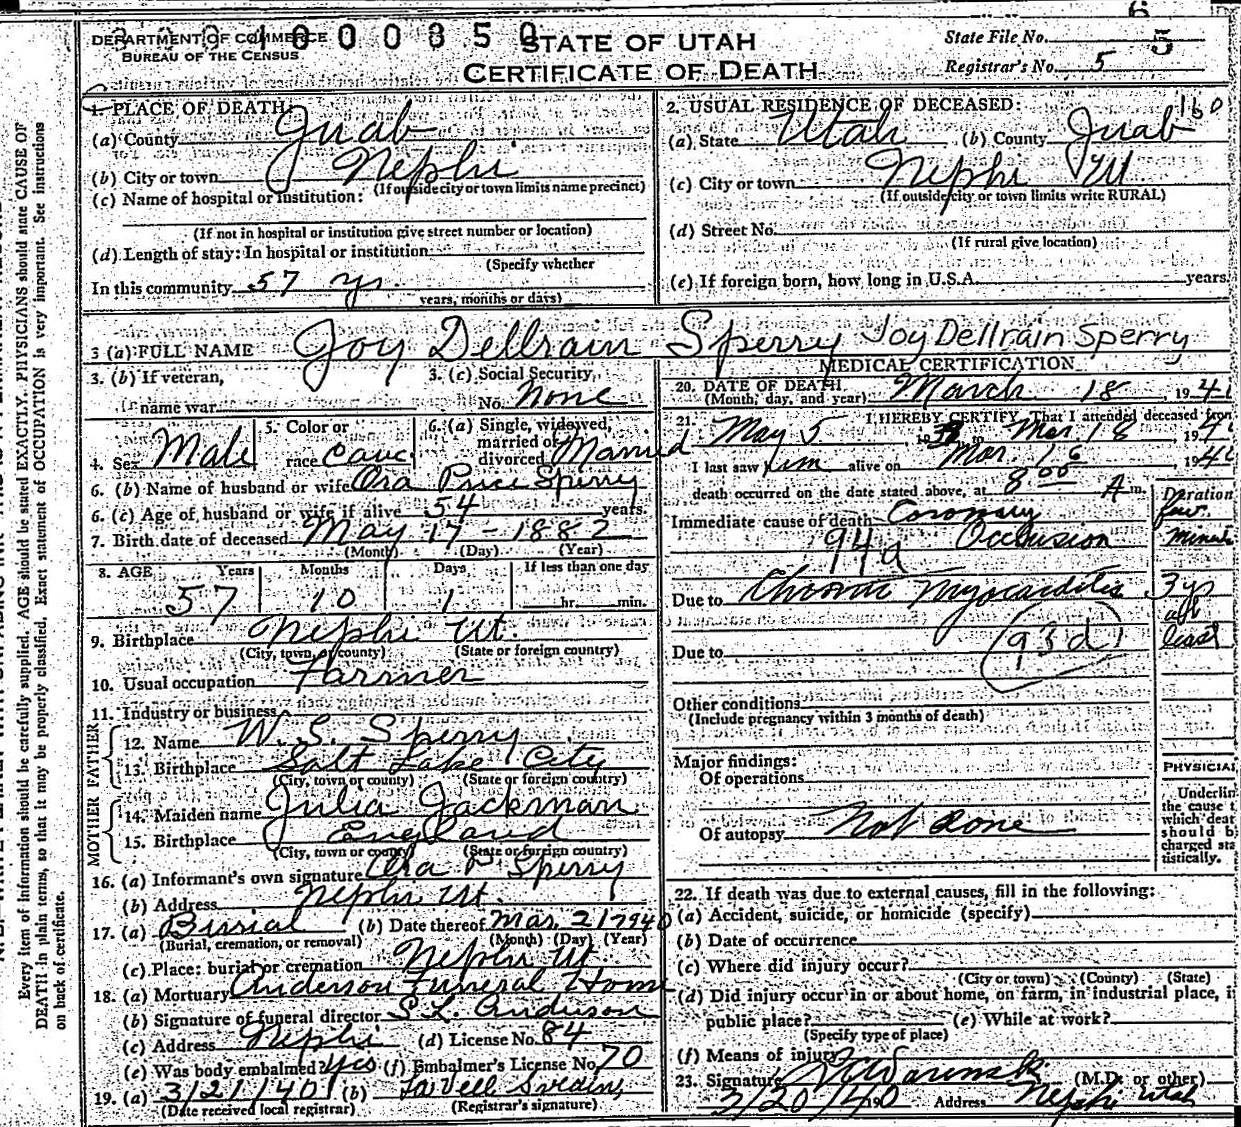 6
DEPARTMENT OF COMMERCE
BUREAU OF THE CENSUS
STATE OF UTAH
CERTIFICATE OF DEATH
State File No. 5
Registrar's No. 5
1. PLACE OF DEATH:
(a) County Juab
(b) City or town Nephi
(If outside city or town limits name precinct)
(c) Name of hospital or institution:
(If not in hospital or institution give street number or location)
(d) Length of stay: In hospital or institution
(Specify whether
In this community 57 yrs.
years, months or days)
2. USUAL RESIDENCE OF DECEASED: 160
(a) State Utah (b) County Juab
(c) City or town Nephi Ut
(If outside city or town limits write RURAL)
(d) Street No.
(If rural give location)
(e) If foreign born, how long in U.S.A. years.
3 (a) FULL NAME Joy Dellrain Sperry Joy Dellrain Sperry
3. (b) If veteran,
name war
3. (c) Social Security
No. None
4. Sex Male
5. Color or
race Cauc
6. (a) Single, widowed,
married or
divorced Married
6. (b) Name of husband or wife Ora Price Sperry
6. (c) Age of husband or wife if alive 54 years.
7. Birth date of deceased May 17 - 1882
(Month) (Day) (Year)
8. AGE Years Months Days If less than one day
57 10 1 hr. min.
9. Birthplace Nephi Ut.
(City, town, or county) (State or foreign country)
10. Usual occupation Farmer
11. Industry or business
FATHER
12. Name W. S. Sperry
13. Birthplace Salt Lake City
(City, town or county) (State or foreign country)
MOTHER
14. Maiden name Julia Jackman
15. Birthplace England
(City, town or county) (State or foreign country)
16. (a) Informant's own signature Ora P. Sperry
(b) Address Nephi Ut.
17. (a) Burial (b) Date thereof Mar. 21 1940
(Burial, cremation, or removal) (Month) (Day) (Year)
(c) Place: burial or cremation Nephi Ut.
18. (a) Mortuary Anderson Funeral Home
(b) Signature of funeral director S.L. Anderson
(c) Address Nephi (d) License No. 84
(e) Was body embalmed? Yes (f) Embalmer's License No. 70
19. (a) 3/21/40 (b)
(Date received local registrar) (Registrar's signature)
MEDICAL CERTIFICATION
20. DATE OF DEATH March 18, 194
(Month, day, and year)
21. I HEREBY CERTIFY, That I attended deceased from
May 5, 19 to Mar. 18, 194
I last saw him alive on Mar. 16 194
death occurred on the date stated above, at 8 00 A m.
Duration
Immediate cause of death Coronary few
94a Occlusion minutes
Due to Chronic Myocarditis 3 yrs
at
least
Due to (93d)
Other conditions
(Include pregnancy within 3 months of death)
Major findings:
Of operations
Of autopsy Not done
PHYSICIAN
Underlin
the cause t
which deat
should b
charged sta
tistically.
22. If death was due to external causes, fill in the following:
(a) Accident, suicide, or homicide (specify)
(b) Date of occurrence
(c) Where did injury occur?
(City or town) (County) (State)
(d) Did injury occur in or about home, on farm, in industrial place, i
public place? (e) While at work?
(Specify type of place)
(f) Means of injury
23. Signature (M.D. or other)
3/20/40 Address Nephi Utah
Every item of information should be carefully supplied. AGE should be stated EXACTLY. PHYSICIANS should state CAUSE OF
DEATH in plain terms, so that it may be properly classified. Exact statement of OCCUPATION is very important. See instructions
on back of certificate.